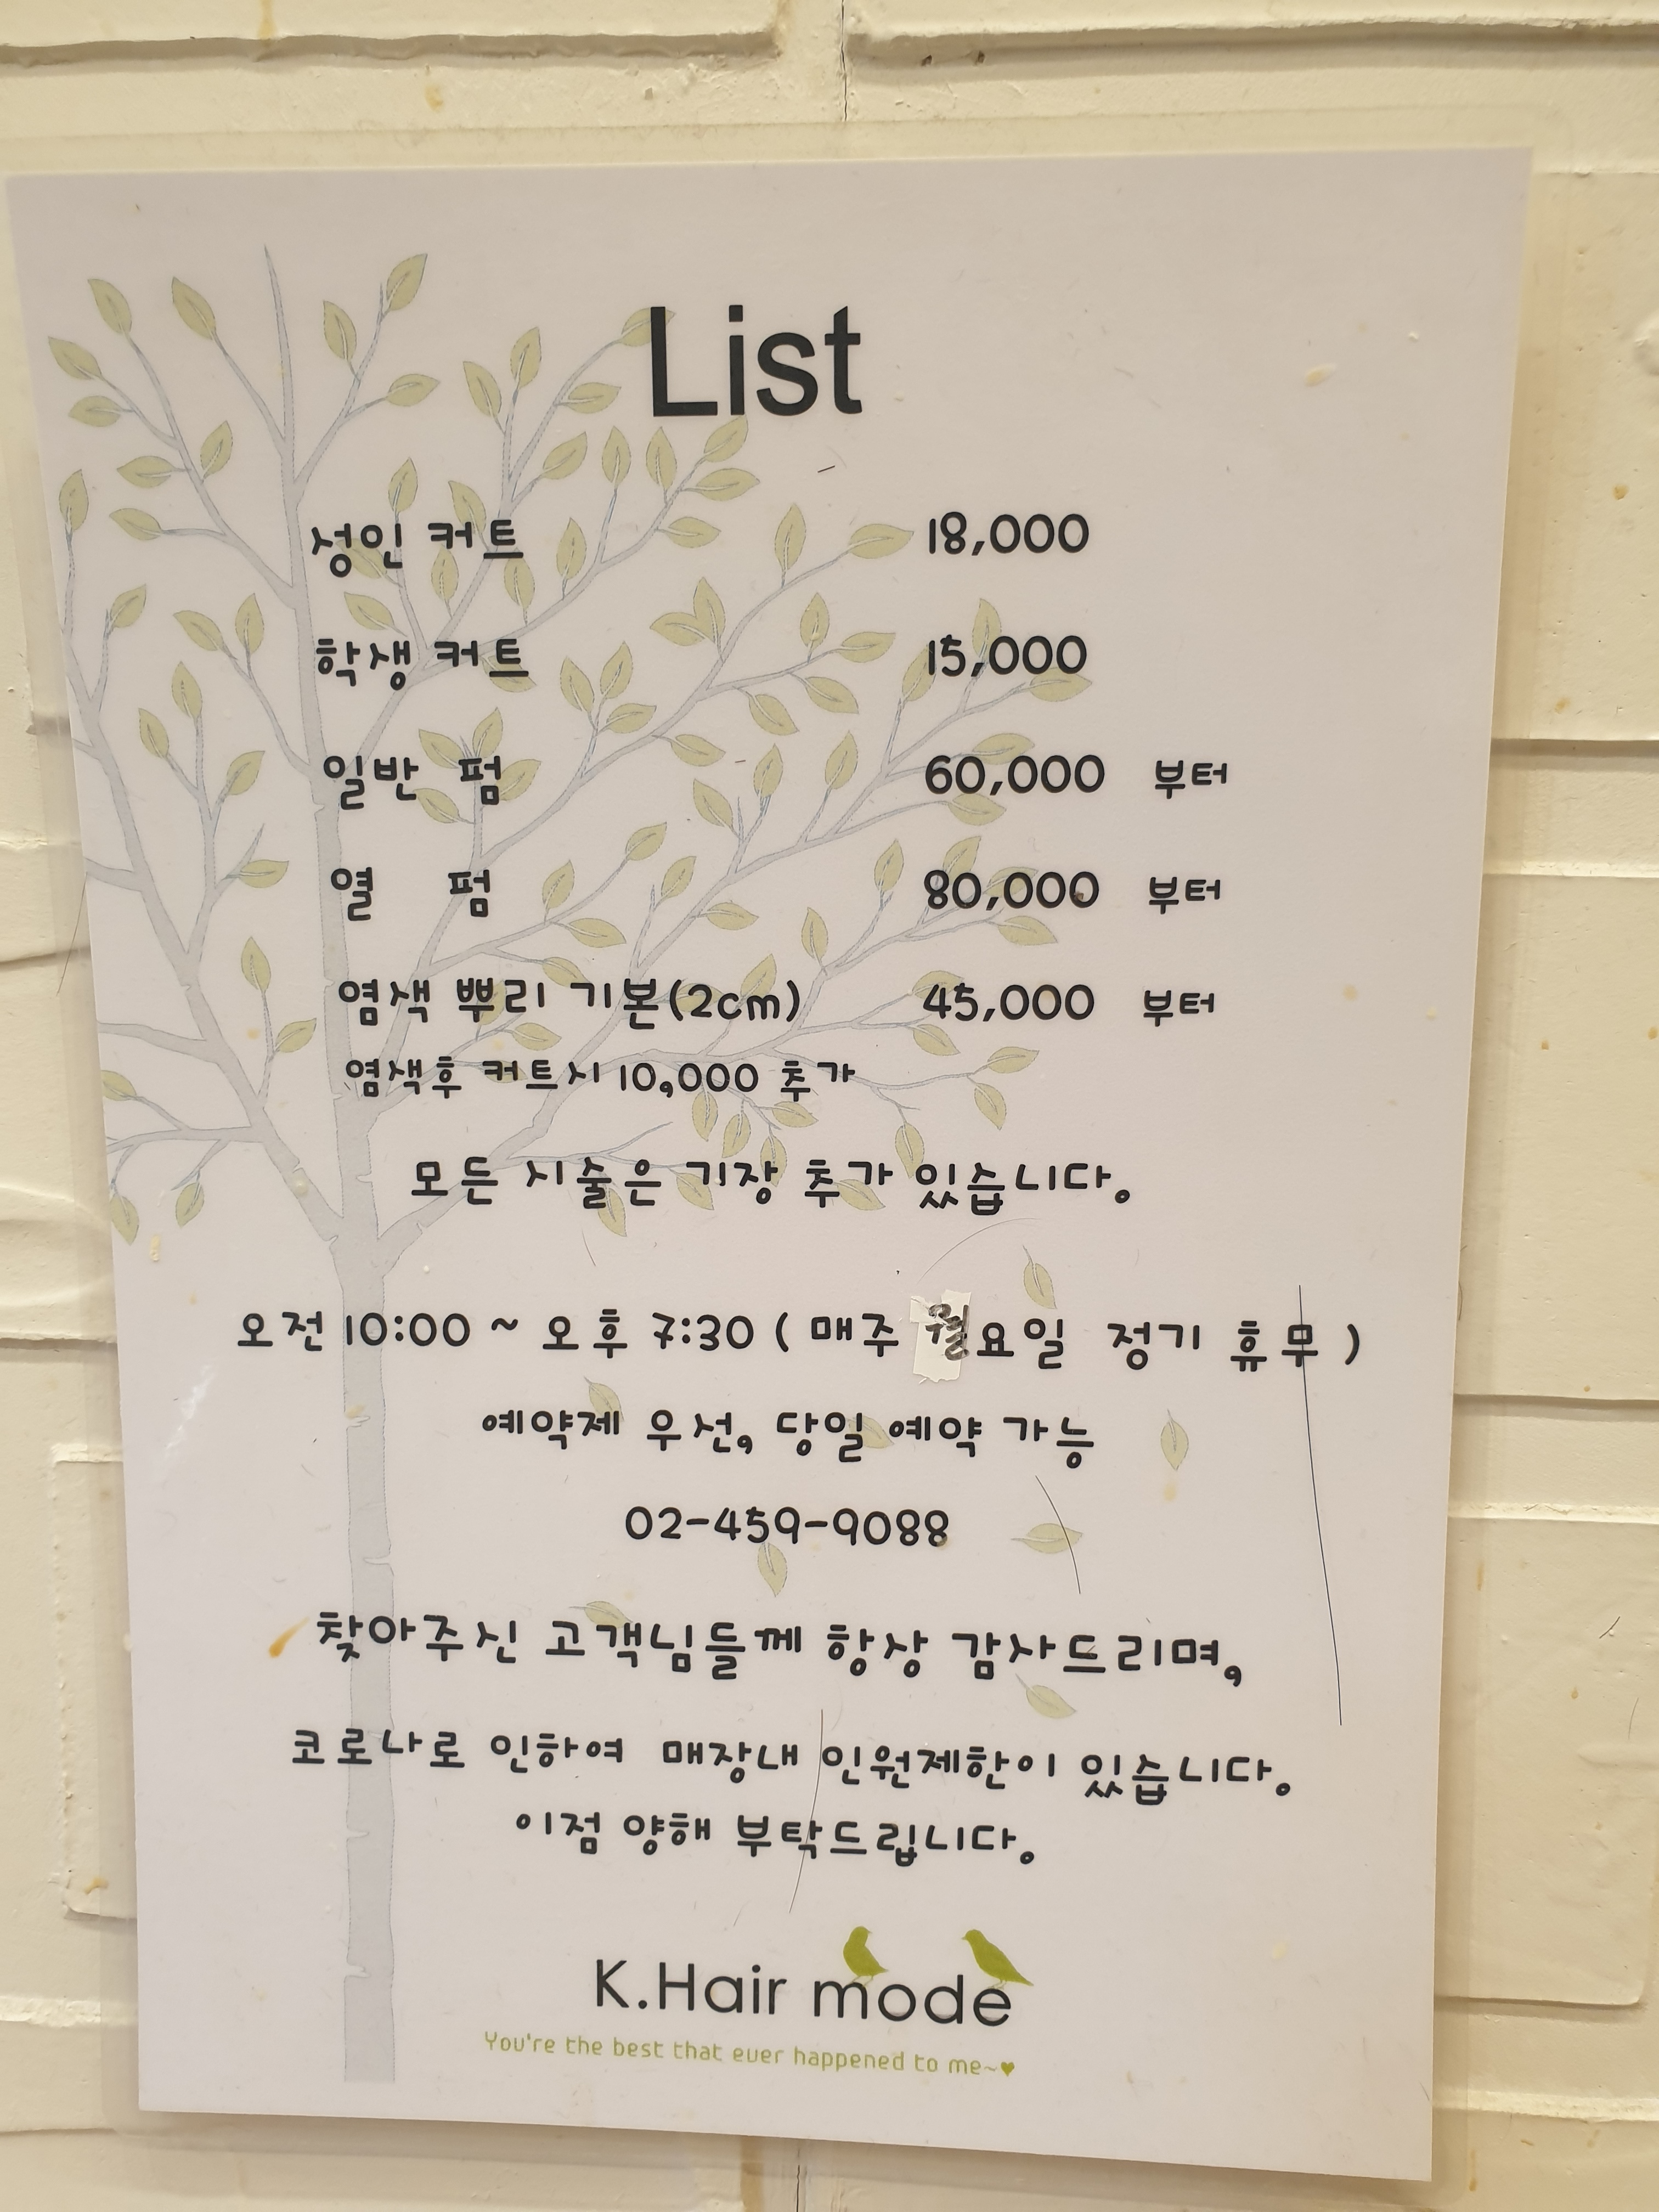 List
성인 커트 18,000
학생 커트 15,000
일반 펌 60,000 부터
열 펌 80,000 부터
염색 뿌리 기본(2cm) 45,000 부터
염색후 커트시 10,000 추가
모든 시술은 기장 추가 있습니다.
오전 10:00 ~ 오후 7:30 ( 매주 월요일 정기 휴무 )
예약제 우선, 당일 예약 가능
02-459-9088
찾아주신 고객님들께 항상 감사드리며,
코로나로 인하여 매장내 인원제한이 있습니다.
이점 양해 부탁드립니다.
K.Hair mode
You're the best that ever happened to me~♥